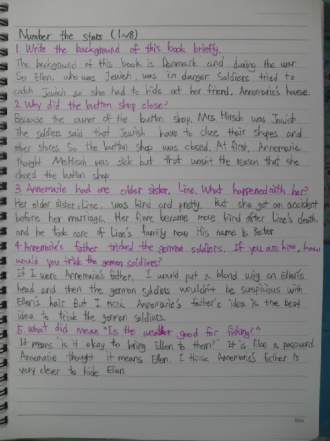 Number the stars (1~8)
1. Write the background of this book briefly.
The background of this book is Denmark and during the war
So Ellen, who was Jewish, was in danger Soldiers tried to
catch Jewish so she had to hide at her friend, Annemarie's house.
2. Why did the button shop close?
Because the owner of the button shop, Mrs Hirsch was Jewish
The soldiers said that Jewish have to close their shopes and
other stores So the button shop was closed. At first, Annemarie
thought was sick but that wasn't the reason that she
closed the button shop
3 Annemarie had one older sister, Lise. What happened with her?
Her older sister, Lise, was kind and pretty. But she got an accident
before her marriage. Her fiance became more kind after Lise's death
and he took care of Lise's family now His name is Peter
4. Annemarie's father tricked the german soldiers. If you are him, how
would you trick the german soldiers?
If I were Annemarie's father, I would put a blond wig on Ellen's
head and then the german soldiers wouldn't be suspicious with
Ellen's hair. But I think Annemarie's father's idea is the best
idea to trick the german soldiers.
5. what did mean "Is the weather good for fishing?"
It means "is it okay to bring Ellen to them?" It is like a password.
Annemarie thought it means Ellen. I think Annemarie's father is
very clever to hide Ellen